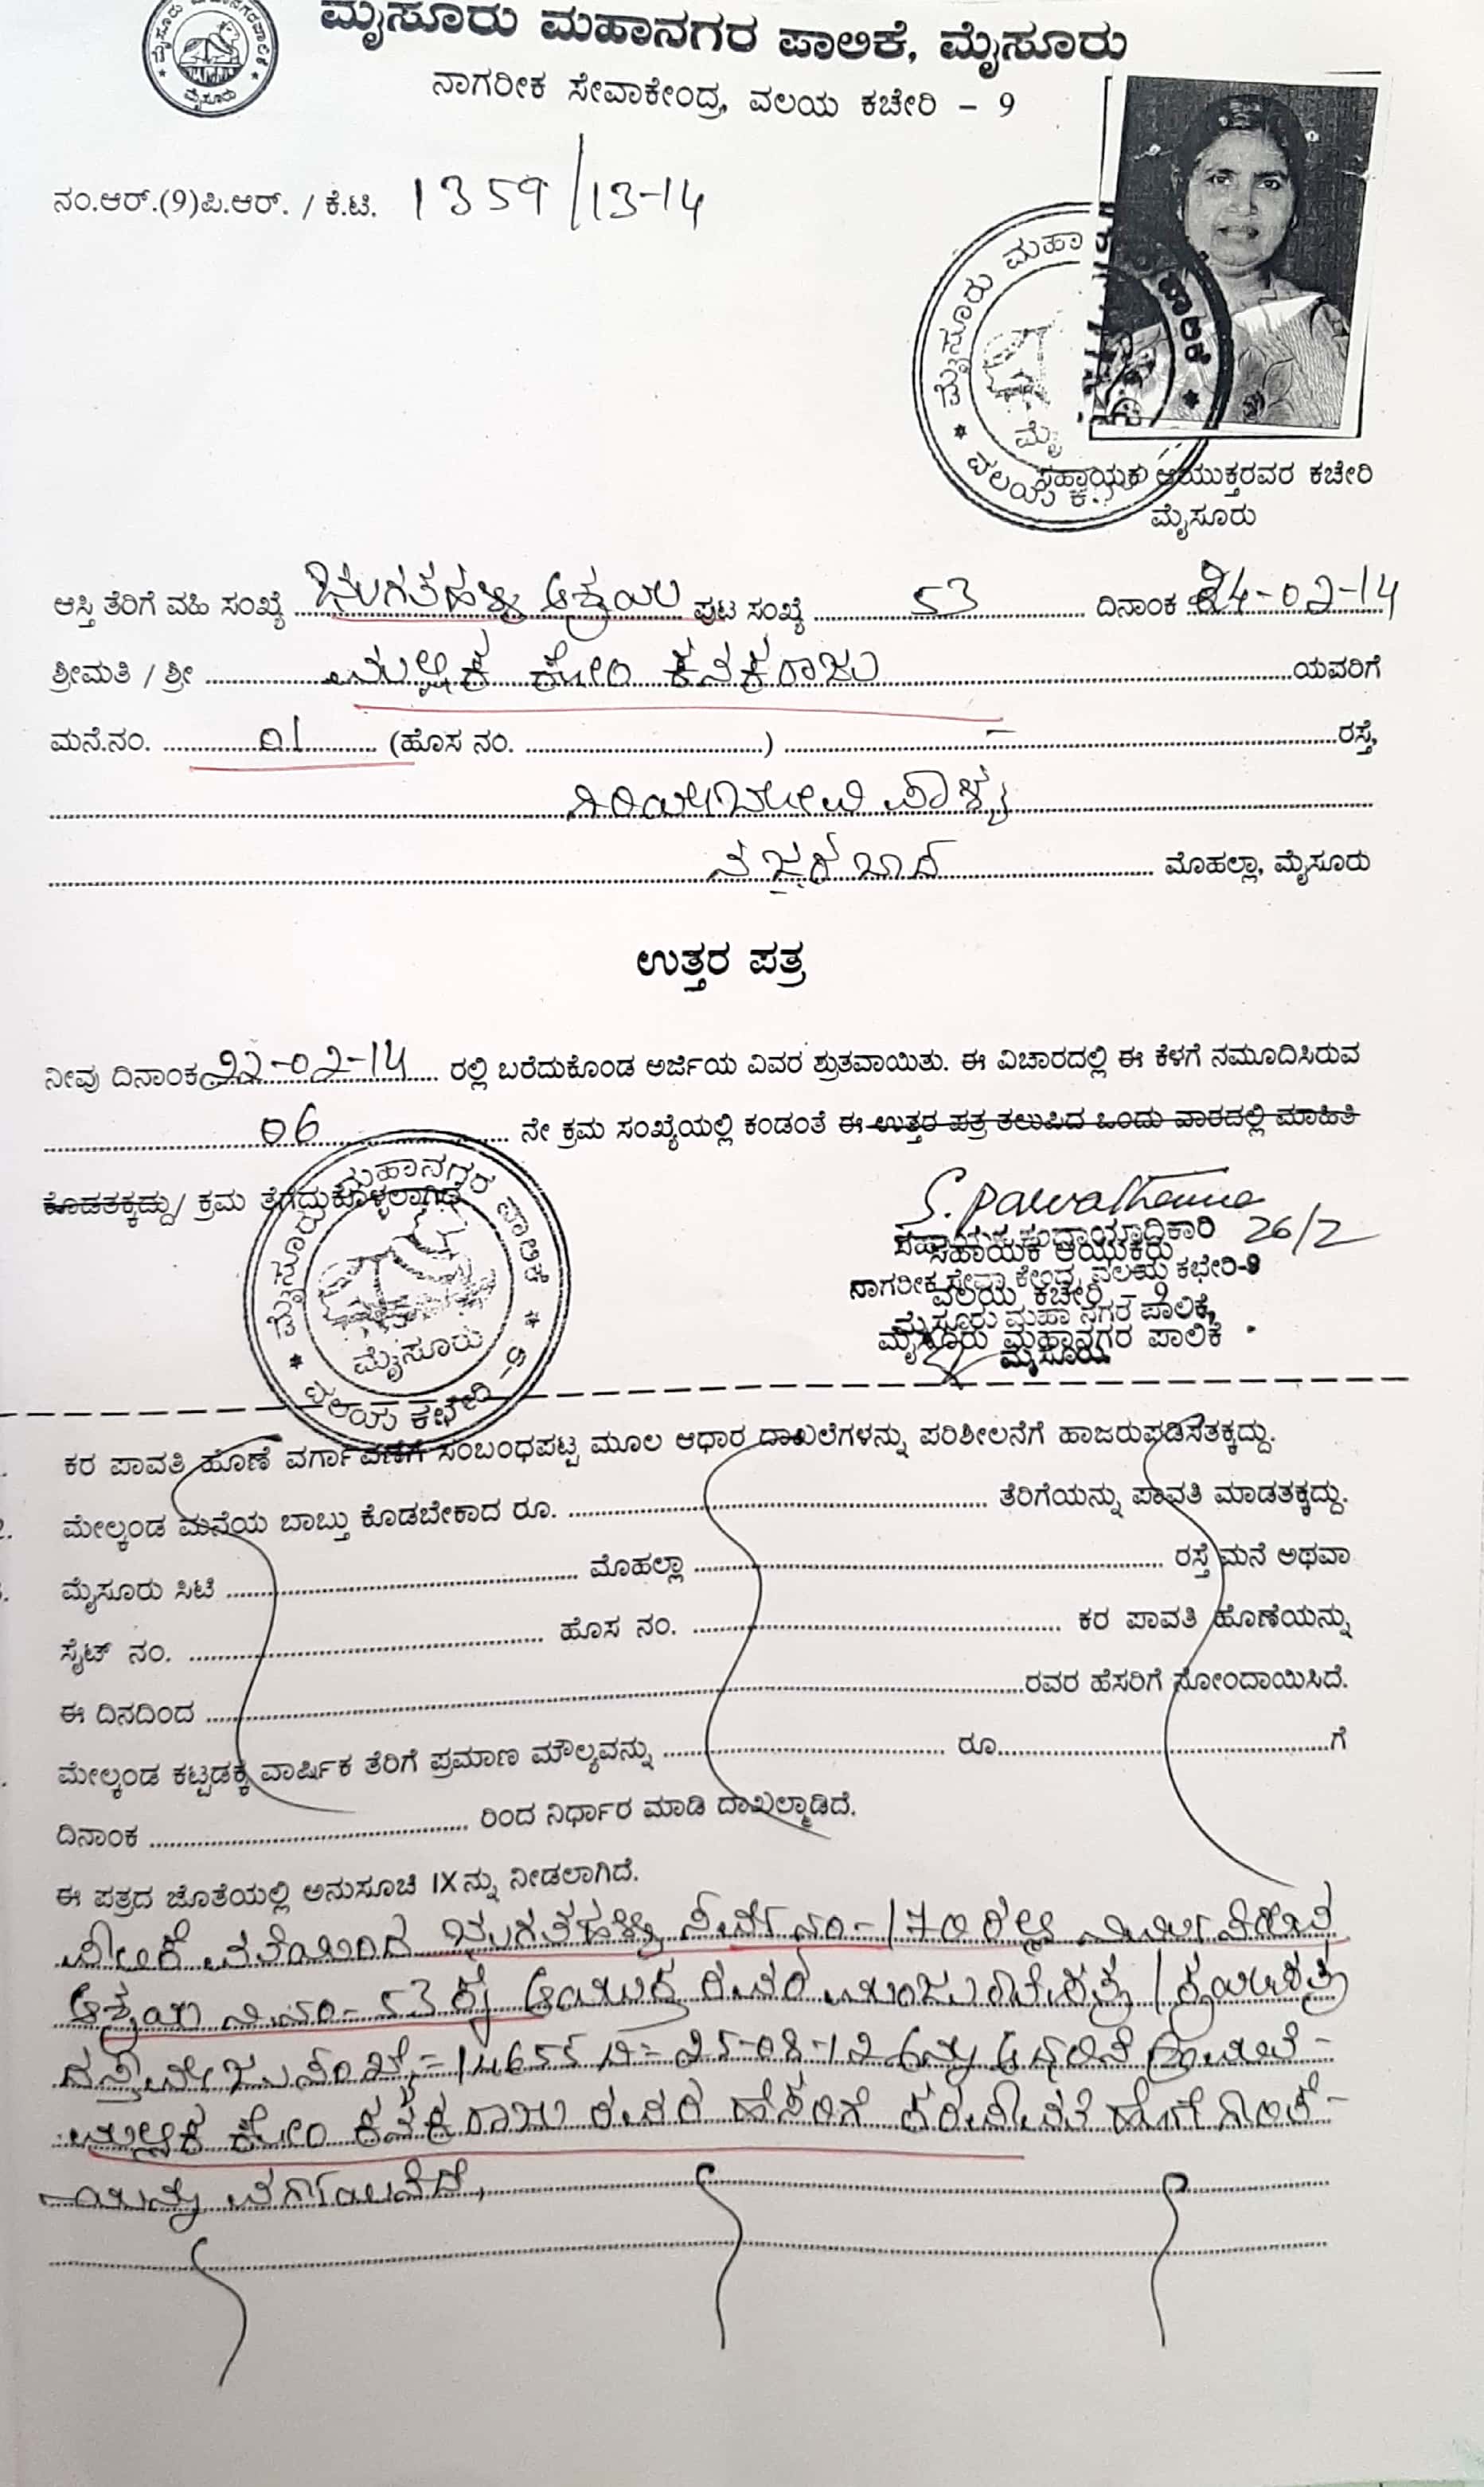 ಮೈಸೂರು ಮಹಾನಗರ ಪಾಲಿಕೆ, ಮೈಸೂರು
ನಾಗರೀಕ ಸೇವಾಕೇಂದ್ರ, ವಲಯ ಕಚೇರಿ – 9
ನಂ.ಆರ್.(9)ಪಿ.ಆರ್. / ಕೆ.ಟಿ. 1359/13-14
ಸಹಾಯಕ ಆಯುಕ್ತರವರ ಕಚೇರಿ
ಮೈಸೂರು
ಆಸ್ತಿ ತೆರಿಗೆ ವಹಿ ಸಂಖ್ಯೆ ಭುಗತಹಳ್ಳಿ ಆಶ್ರಯ ಪುಟ ಸಂಖ್ಯೆ 53 ದಿನಾಂಕ 24-02-14
ಶ್ರೀಮತಿ / ಶ್ರೀ ಮಲ್ಲಿಕ ಕೋಂ ಕನಕರಾಜು ಯವರಿಗೆ
ಮನೆ.ನಂ. 01 (ಹೊಸ ನಂ. ) – ರಸ್ತೆ,
ಗಿರಿಯಾಬೋವಿ ಪಾಳ್ಯ
ನಜರಬಾದ ಮೊಹಲ್ಲಾ, ಮೈಸೂರು
ಉತ್ತರ ಪತ್ರ
ನೀವು ದಿನಾಂಕ 22-02-14 ರಲ್ಲಿ ಬರೆದುಕೊಂಡ ಅರ್ಜಿಯ ವಿವರ ಶ್ರುತವಾಯಿತು. ಈ ವಿಚಾರದಲ್ಲಿ ಈ ಕೆಳಗೆ ನಮೂದಿಸಿರುವ
06 ನೇ ಕ್ರಮ ಸಂಖ್ಯೆಯಲ್ಲಿ ಕಂಡಂತೆ ಈ ಉತ್ತರ ಪತ್ರ ತಲುಪಿದ ಒಂದು ವಾರದಲ್ಲಿ ಮಾಹಿತಿ
ಕೊಡತಕ್ಕದ್ದು/ ಕ್ರಮ ತೆಗೆದುಕೊಳ್ಳಲಾಗಿದೆ
26/2
ಸಹಾಯಕ ಕಂದಾಯಾಧಿಕಾರಿ
ಸಹಾಯಕ ಆಯುಕ್ತರು
ನಾಗರೀಕ ಸೇವಾ ಕೇಂದ್ರ, ವಲಯ ಕಛೇರಿ-9
ವಲಯ ಕಚೇರಿ – 9
ಮೈಸೂರು ಮಹಾ ನಗರ ಪಾಲಿಕೆ,
ಮೈಸೂರು ಮಹಾನಗರ ಪಾಲಿಕೆ
ಮೈಸೂರು.
ಮೈಸೂರು ಮಹಾನಗರ ಪಾಲಿಕೆ
ಮೈಸೂರು
ವಲಯ ಕಛೇರಿ - 9
ಕರ ಪಾವತಿ ಹೊಣೆ ವರ್ಗಾವಣೆಗೆ ಸಂಬಂಧಪಟ್ಟ ಮೂಲ ಆಧಾರ ದಾಖಲೆಗಳನ್ನು ಪರಿಶೀಲನೆಗೆ ಹಾಜರುಪಡಿಸತಕ್ಕದ್ದು.
ಮೇಲ್ಕಂಡ ಮನೆಯ ಬಾಬ್ತು ಕೊಡಬೇಕಾದ ರೂ. ತೆರಿಗೆಯನ್ನು ಪಾವತಿ ಮಾಡತಕ್ಕದ್ದು.
ಮೈಸೂರು ಸಿಟಿ ಮೊಹಲ್ಲಾ ರಸ್ತೆ ಮನೆ ಅಥವಾ
ಸೈಟ್ ನಂ. ಹೊಸ ನಂ. ಕರ ಪಾವತಿ ಹೊಣೆಯನ್ನು
ಈ ದಿನದಿಂದ ರವರ ಹೆಸರಿಗೆ ನೋಂದಾಯಿಸಿದೆ.
ಮೇಲ್ಕಂಡ ಕಟ್ಟಡಕ್ಕೆ ವಾರ್ಷಿಕ ತೆರಿಗೆ ಪ್ರಮಾಣ ಮೌಲ್ಯವನ್ನು ರೂ. ಗೆ
ದಿನಾಂಕ ರಿಂದ ನಿರ್ಧಾರ ಮಾಡಿ ದಾಖಲ್ಮಾಡಿದೆ.
ಈ ಪತ್ರದ ಜೊತೆಯಲ್ಲಿ ಅನುಸೂಚಿ IX ನ್ನು ನೀಡಲಾಗಿದೆ.
ಭುಗತಹಳ್ಳಿ ಸರ್ವೆ ನಂ-170 ರಲ್ಲಿ
ಆಶ್ರಯ ನಿ.ನಂ- 53 ಕ್ಕೆ ಆಯುಕ್ತ ರವರ ಮಂಜೂರಾತಿ ಪತ್ರ / ಕ್ರಯಪತ್ರ
ದಸ್ತಾವೇಜು ಸಂಖ್ಯೆ=14655 ದಿ= 25-08-12
ಮಲ್ಲಿಕ ಕೋಂ ಕನಕರಾಜು ರವರ ಹೆಸರಿಗೆ
ಯನ್ನು ವರ್ಗಾಯಿಸಿದೆ,